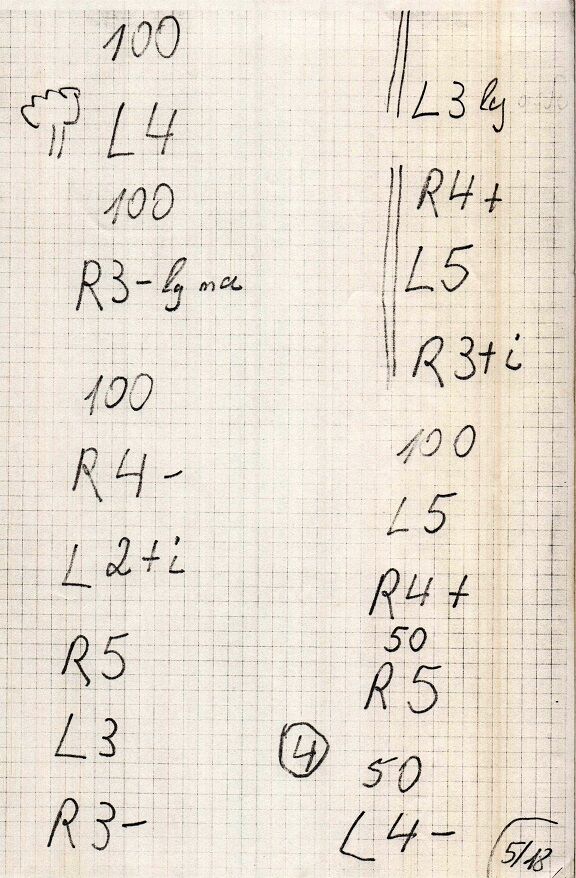 100
L4
100
R3- lg na
100
R4-
L2+i
R5
L3
R3-
L3 lg
R4+
L5
R3+i
100
L5
R4+
50
R5
4
50
L4-
5/18